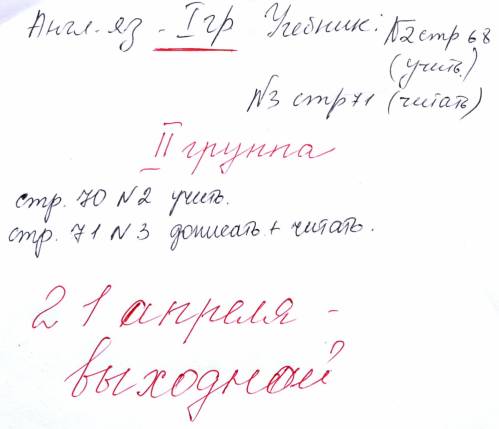 Англ. яз - I гр Учебник: №2 стр 68
(учить.)
№3 стр 71 (читать)
II группа
стр. 70 №2 учить.
стр. 71 №3 дописать + читать.
21 апреля -
выходной